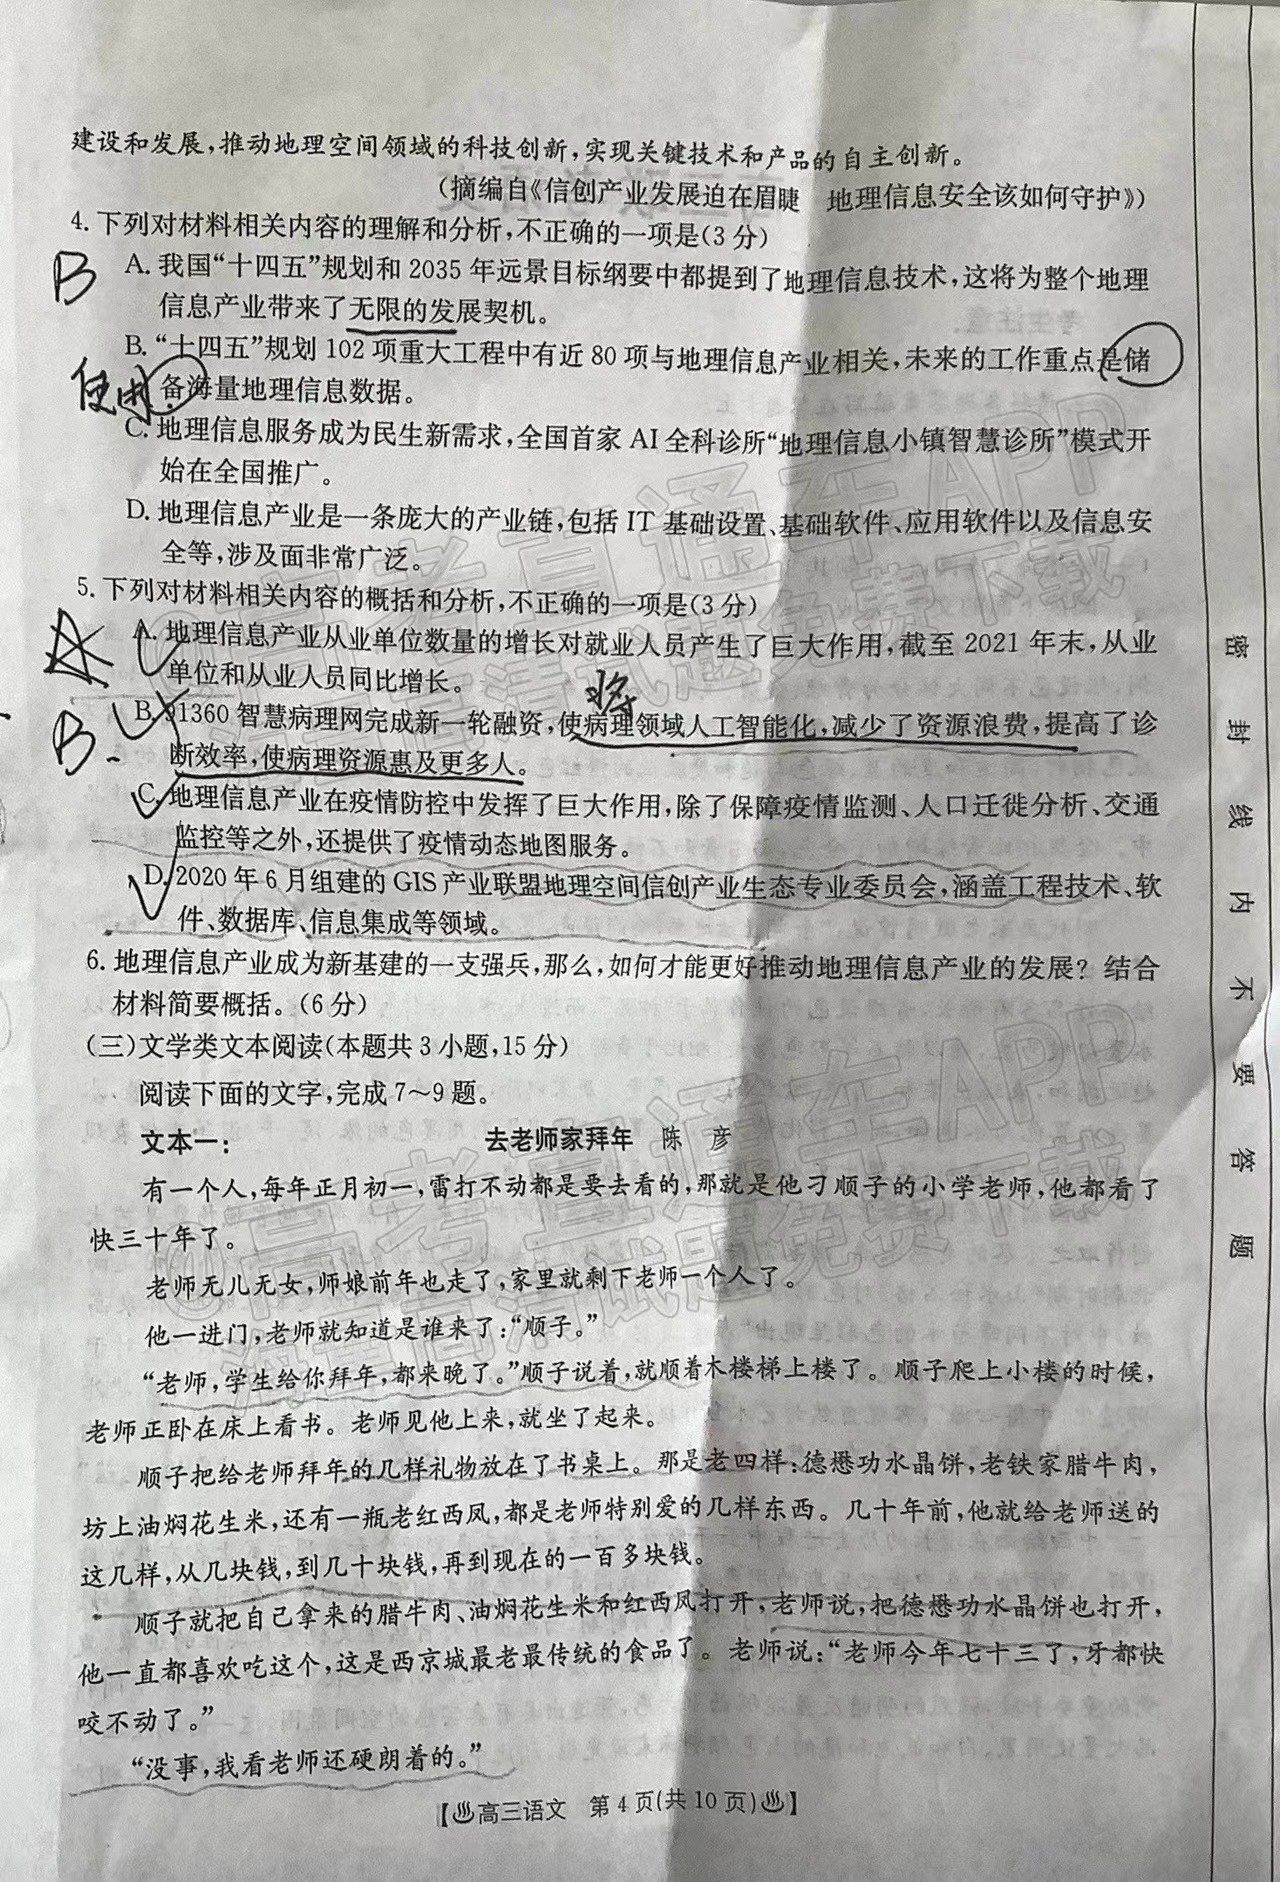 建设和发展，推动地理空间领域的科技创新，实现关键技术和产品的自主创新。
（摘编自《信创产业发展迫在眉睫　地理信息安全该如何守护》）
4. 下列对材料相关内容的理解和分析，不正确的一项是（3 分）
B
A. 我国“十四五”规划和 2035 年远景目标纲要中都提到了地理信息技术，这将为整个地理
信息产业带来了无限的发展契机。
B. “十四五”规划 102 项重大工程中有近 80 项与地理信息产业相关，未来的工作重点是储
使用
备海量地理信息数据。
C. 地理信息服务成为民生新需求，全国首家 AI 全科诊所“地理信息小镇智慧诊所”模式开
始在全国推广。
D. 地理信息产业是一条庞大的产业链，包括 IT 基础设置、基础软件、应用软件以及信息安
全等，涉及面非常广泛。
5. 下列对材料相关内容的概括和分析，不正确的一项是（3 分）
A. 地理信息产业从业单位数量的增长对就业人员产生了巨大作用，截至 2021 年末，从业
单位和从业人员同比增长。
将
B.
B. 91360 智慧病理网完成新一轮融资，使病理领域人工智能化，减少了资源浪费，提高了诊
断效率，使病理资源惠及更多人。
C. 地理信息产业在疫情防控中发挥了巨大作用，除了保障疫情监测、人口迁徙分析、交通
监控等之外，还提供了疫情动态地图服务。
D. 2020 年 6 月组建的 GIS 产业联盟地理空间信创产业生态专业委员会，涵盖工程技术、软
件、数据库、信息集成等领域。
6. 地理信息产业成为新基建的一支强兵，那么，如何才能更好推动地理信息产业的发展？结合
材料简要概括。（6 分）
（三）文学类文本阅读（本题共 3 小题，15 分）
阅读下面的文字，完成 7～9 题。
文本一：　去老师家拜年　陈　彦
有一个人，每年正月初一，雷打不动都是要去看的，那就是他刁顺子的小学老师，他都看了
快三十年了。
老师无儿无女，师娘前年也走了，家里就剩下老师一个人了。
他一进门，老师就知道是谁来了：“顺子。”
“老师，学生给你拜年，都来晚了。”顺子说着，就顺着木楼梯上楼了。顺子爬上小楼的时候，
老师正卧在床上看书。老师见他上来，就坐了起来。
顺子把给老师拜年的几样礼物放在了书桌上。那是老四样：德懋功水晶饼，老铁家腊牛肉，
坊上油焖花生米，还有一瓶老红西凤，都是老师特别爱的几样东西。几十年前，他就给老师送的
这几样，从几块钱，到几十块钱，再到现在的一百多块钱。
顺子就把自己拿来的腊牛肉、油焖花生米和红西凤打开，老师说，把德懋功水晶饼也打开，
他一直都喜欢吃这个，这是西京城最老最传统的食品了。老师说：“老师今年七十三了，牙都快
咬不动了。”
“没事，我看老师还硬朗着的。”
【♨高三语文　第 4 页（共 10 页）♨】
密封线内不要答题
@高考直通车APP
海量高清试题免费下载
@高考直通车APP
海量高清试题免费下载